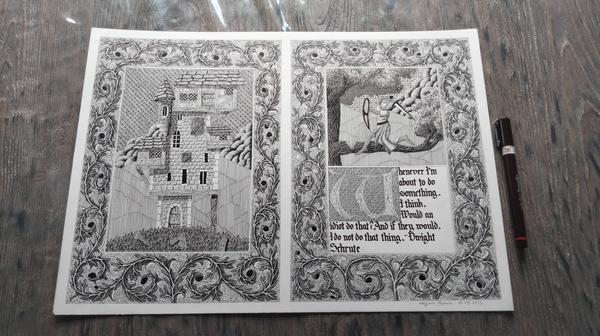 Whenever I'm
about to do
something,
I think,
Would an
idiot do that? And if they would,
I do not do that thing. - Dwight
Schrute